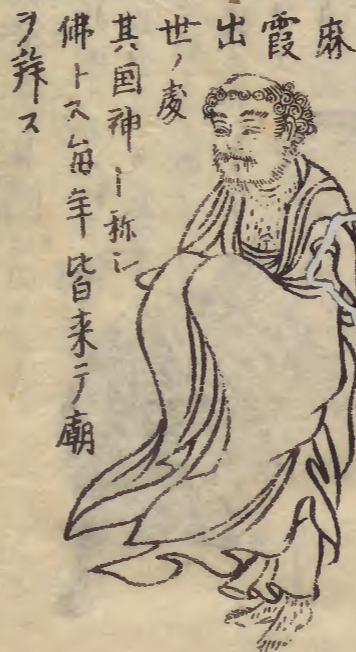 麻
霞
出
世ノ處
其国神ト称シ
佛トス毎年皆来テ廟
ヲ拜ス